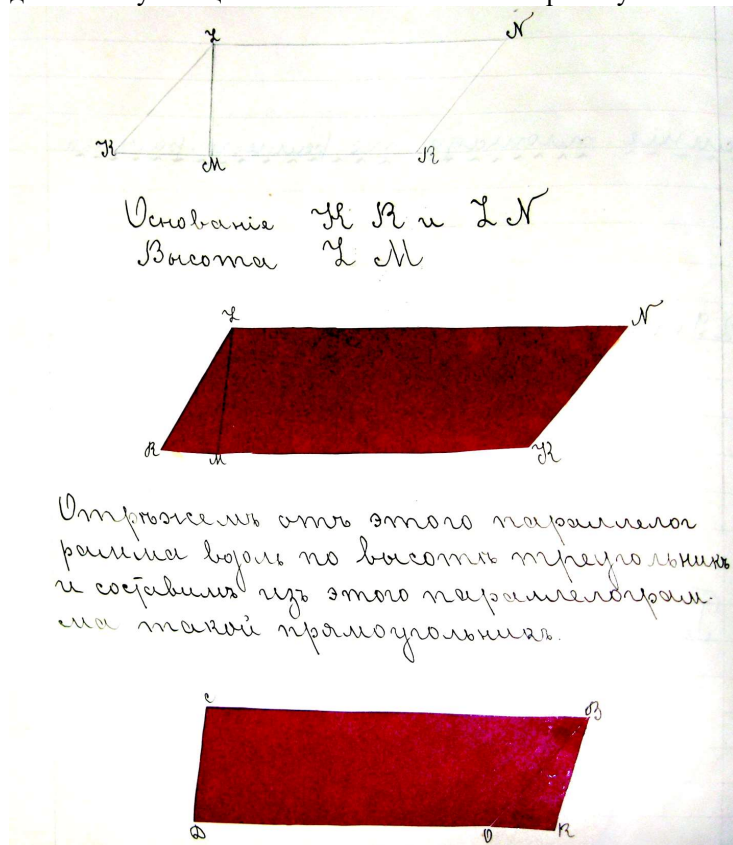 L N
K M R
Основанiе K R и L N
Высота L M
L N
R M K
Отрѣжемъ отъ этого параллелог
рамма вдоль по высотѣ треугольникъ
и составимъ изъ этого параллелограм-
ма такой прямоугольникъ.
C B
D O R